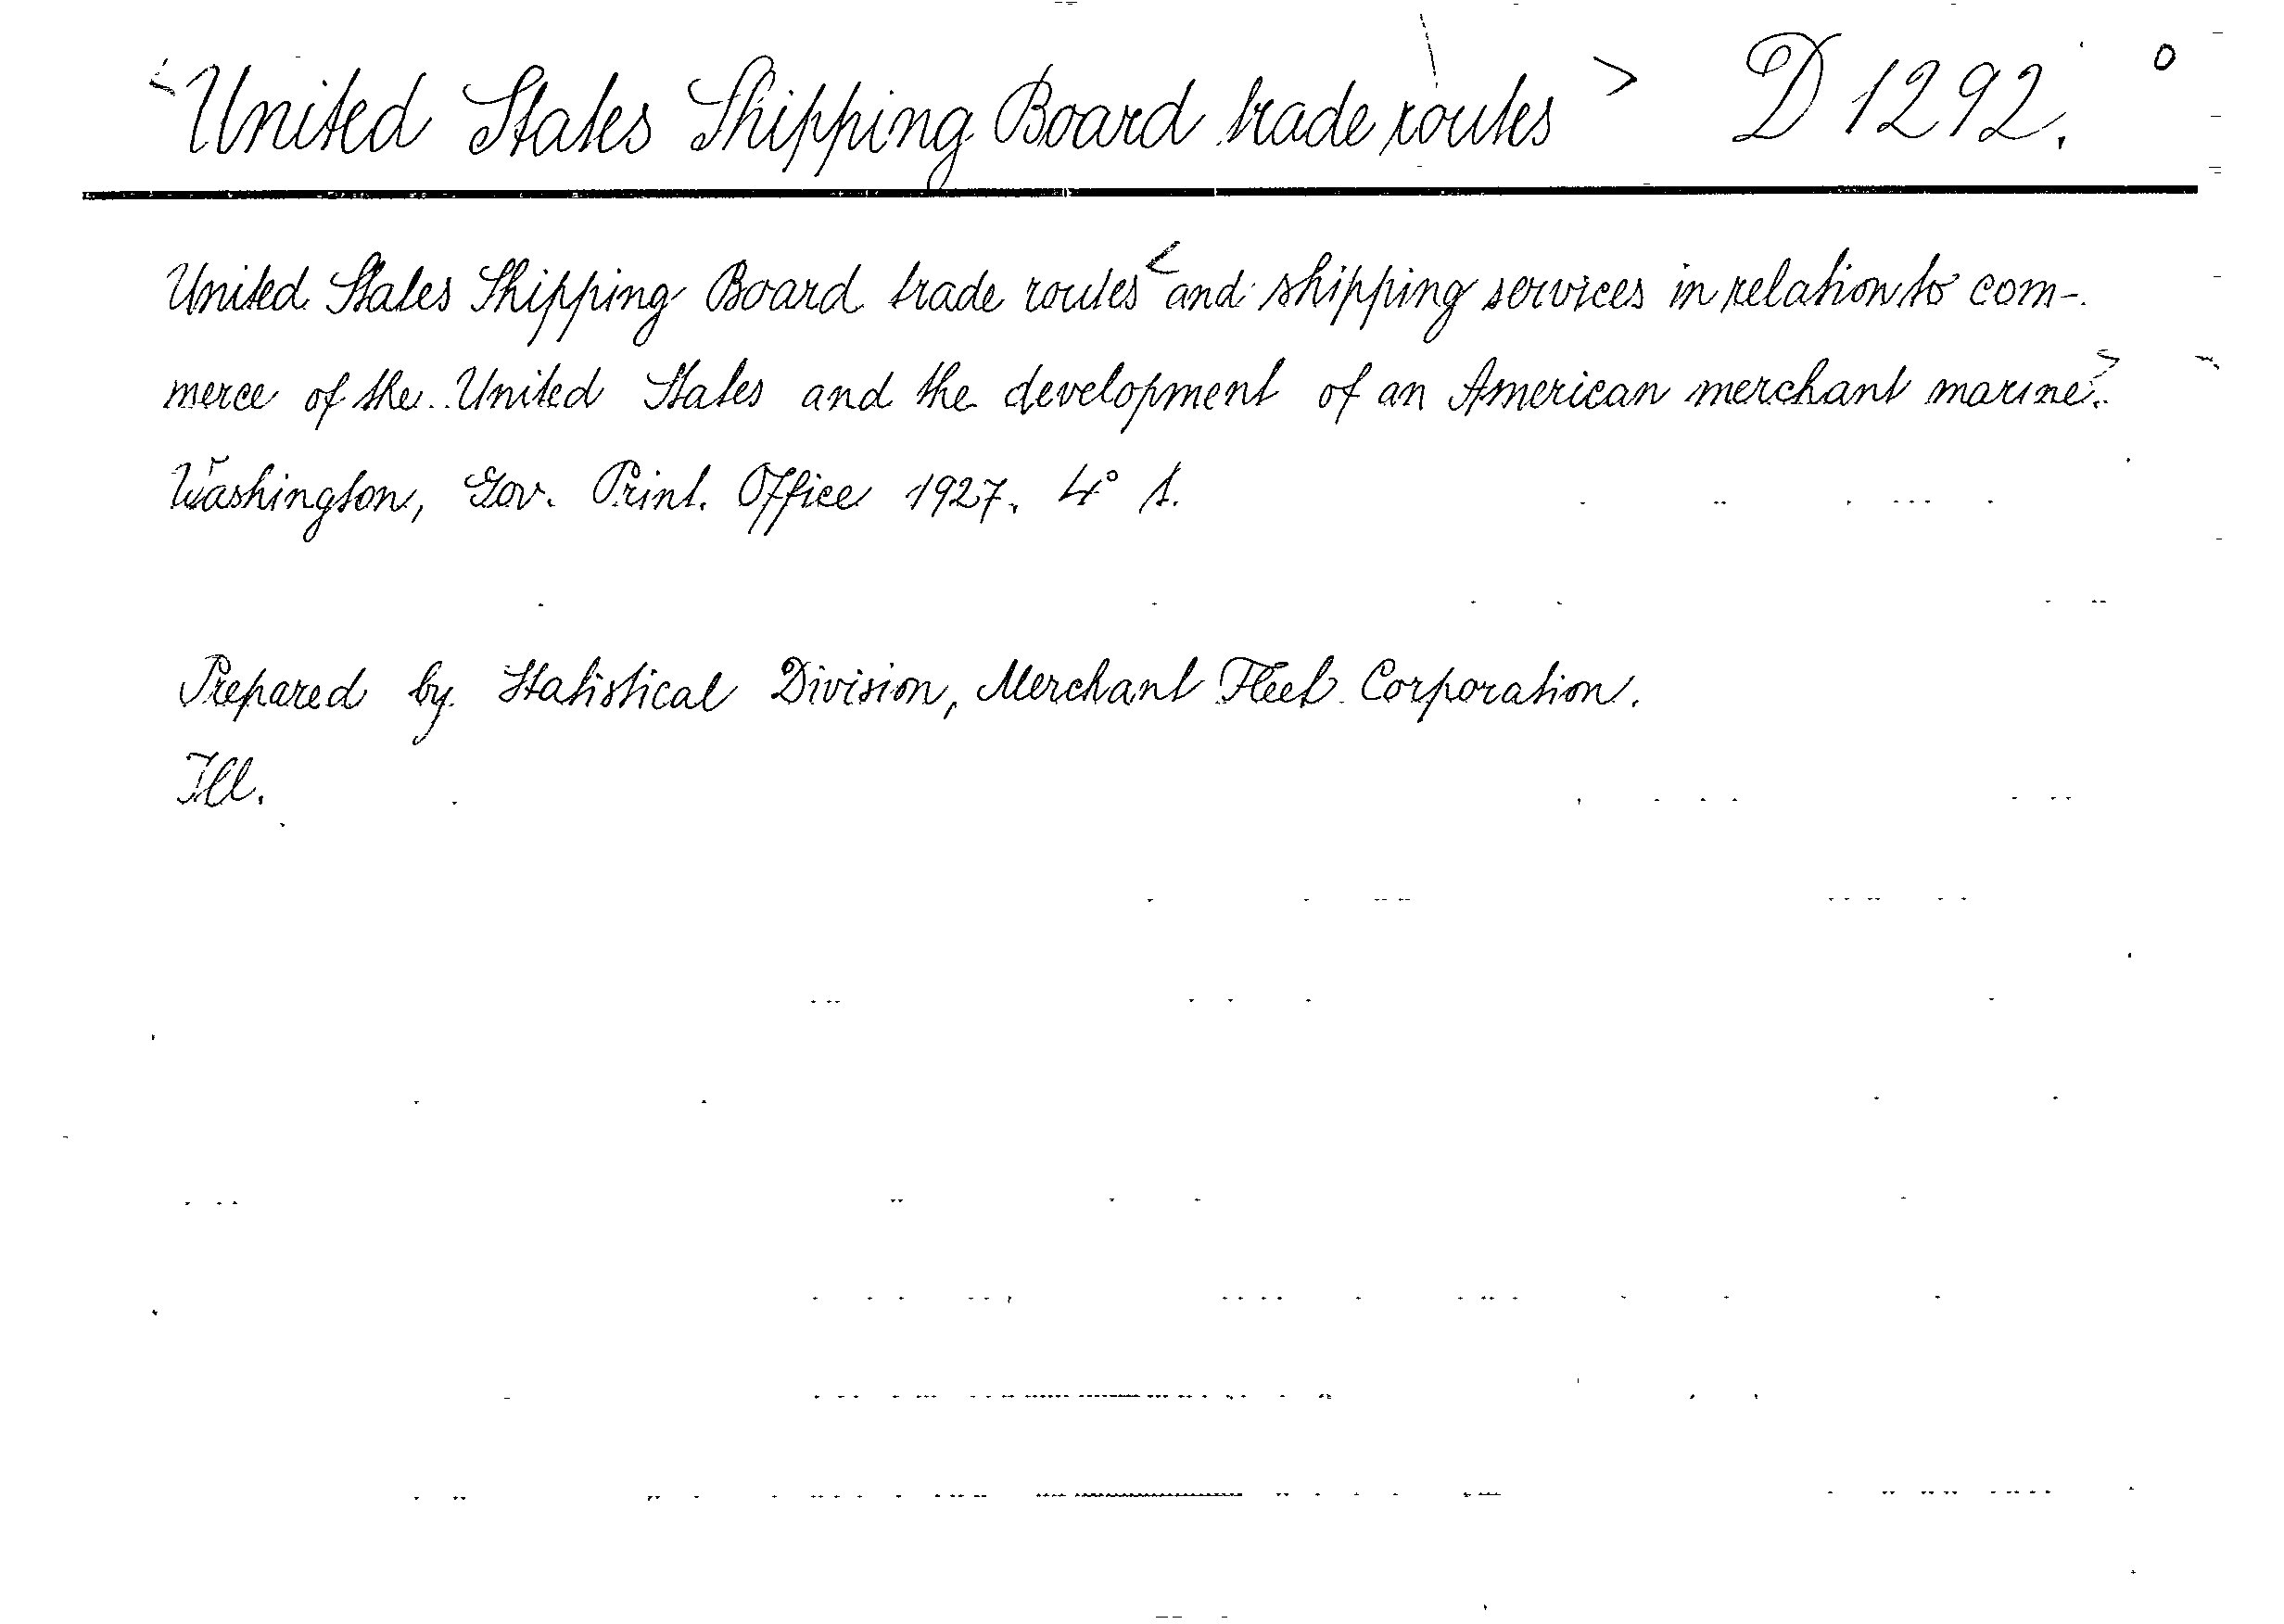 <United States Shipping Board trade routes> D 1292. o
United States Shipping Board trade routes < and shipping services in relation to com-
merce of the United States and the development of an American merchant marine>.
Washington, Gov. Print. Office 1927. 4° s.
Prepared by Statistical Division, Merchant Fleet Corporation.
Ill.